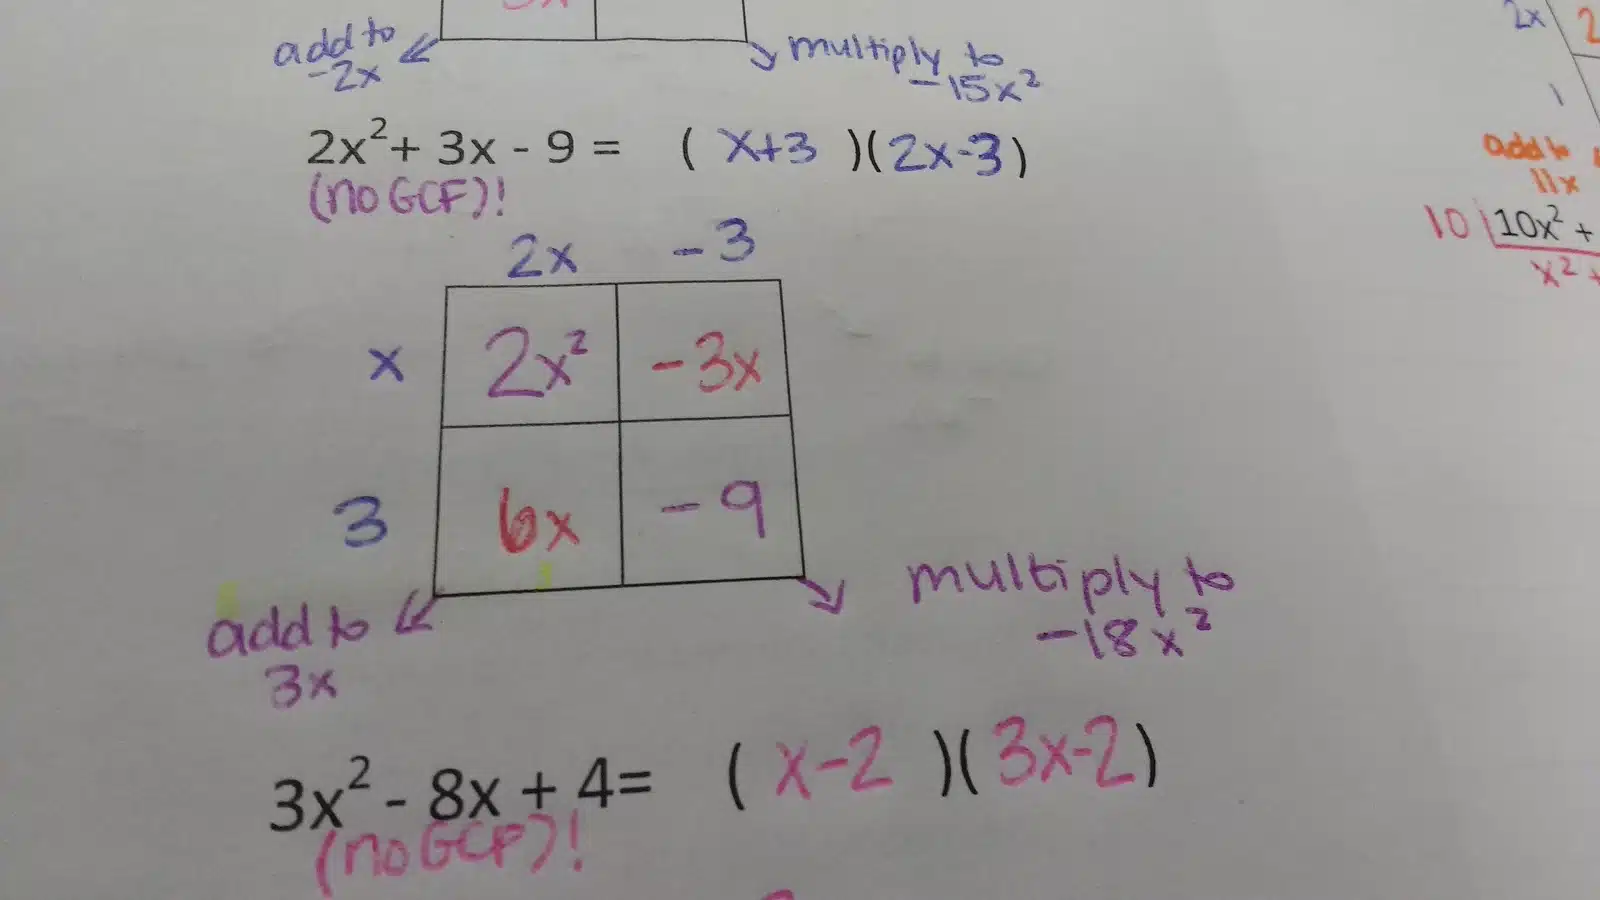 add to
-2x
multiply to
-15x²
2x² + 3x - 9 = ( x+3 )(2x-3)
(no GCF)!
2x -3
x 2x² -3x
3 6x -9
add to
3x
multiply to
-18x²
3x² - 8x + 4= ( x-2 )(3x-2)
(no GCF)!
2x 2
1
add to
11x
10 10x² +
x² +